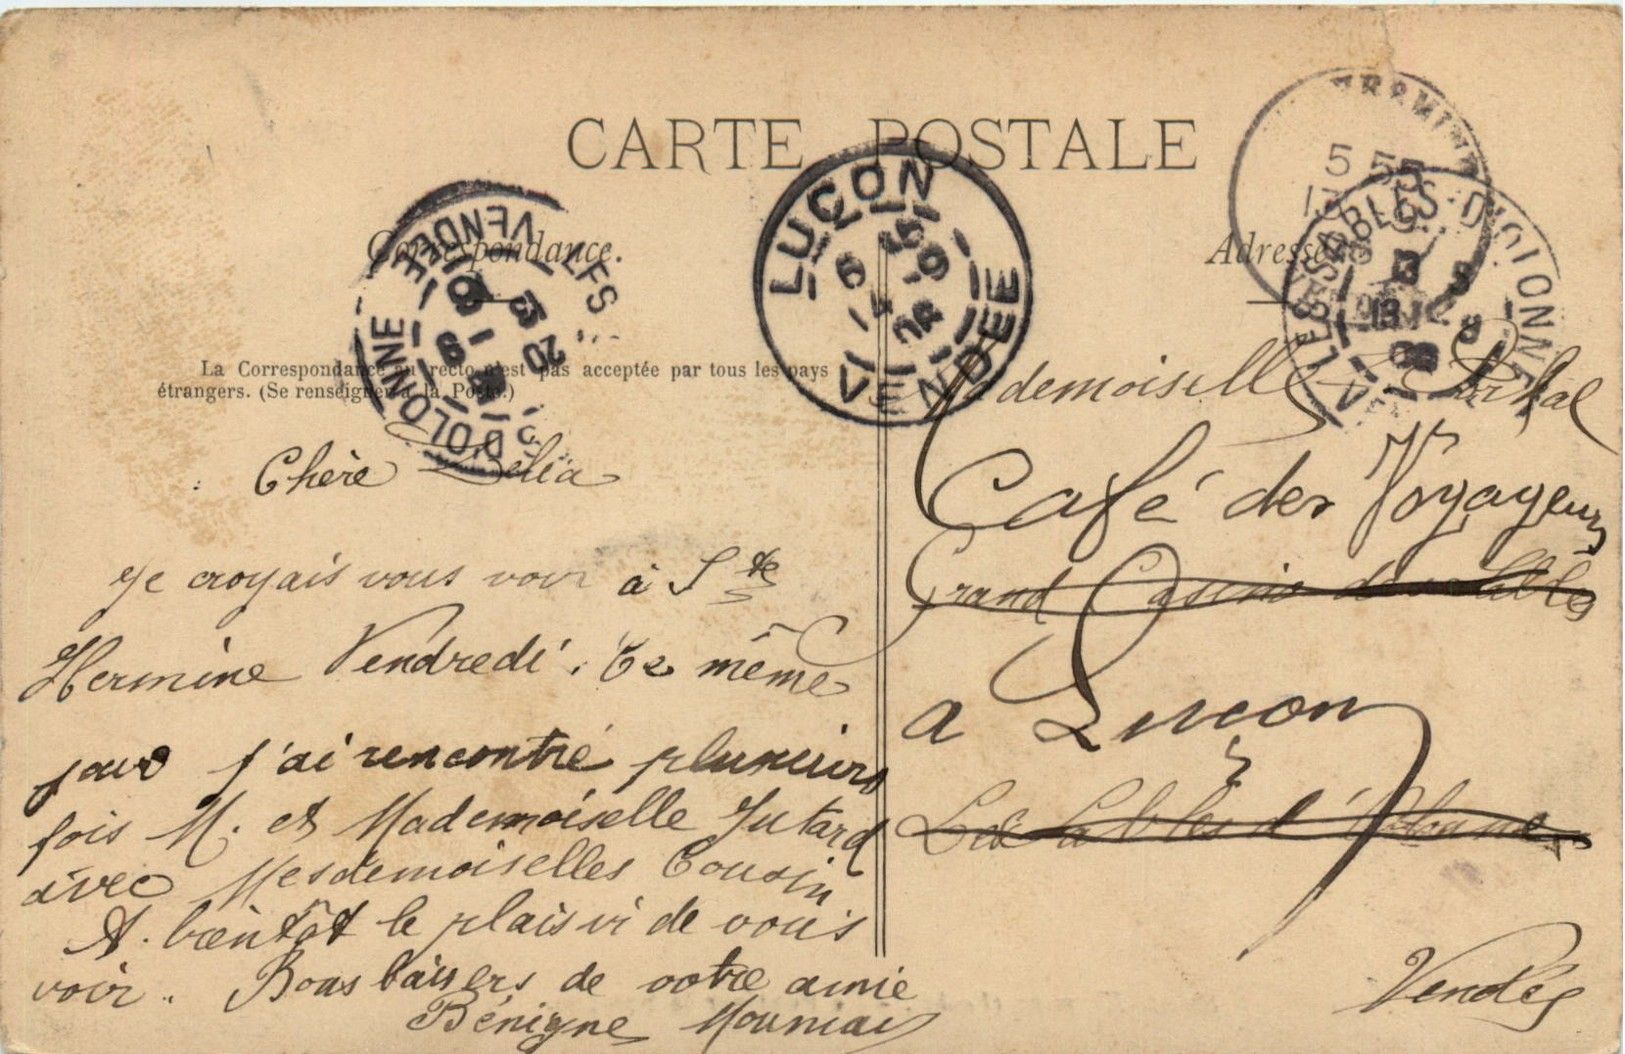 CARTE POSTALE
Correspondance.
Adresse
La Correspondance au recto n'est pas acceptée par tous les pays
étrangers. (Se renseigner à la Poste.)
LUÇON
VENDÉE
LES SABLES-D'OLONNE
VENDÉE
LES SABLES-D'OLONNE
Chère Delia
Je croyais vous voir à Ste
Hermine Vendredi. Ce même
jour j'ai rencontré plusieurs
fois M. et Mademoiselle Jutard
avec Mesdemoiselles Cousin
A. bientôt le plaisir de vous
voir. Bons baisers de votre amie
Bénigne
Mademoiselle
Café des Voyageurs
Grand Casino des Sables
a Luçon
Les Sables d'Olonne
Vendée